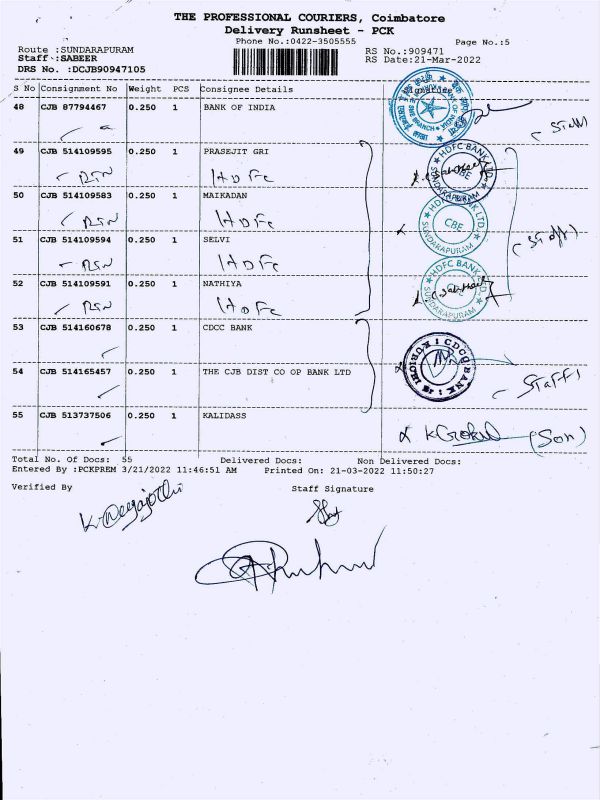 THE PROFESSIONAL COURIERS, Coimbatore
Delivery Runsheet - PCK
Phone No.:0422-3505555 Page No.:5
Route :SUNDARAPURAM RS No.:909471
Staff :SABEER RS Date:21-Mar-2022
DRS No. :DCJB90947105
S No Consignment No Weight PCS Consignee Details Signature
48 CJB 87794467 0.250 1 BANK OF INDIA
BANK OF INDIA
49 CJB 514109595 0.250 1 PRASEJIT GRI
HDFC BANK LTD. CBE SUNDARAPURAM
RTN HDFC
50 CJB 514109583 0.250 1 MAIKADAN
HDFC BANK LTD. CBE SUNDARAPURAM
RTN HDFC
51 CJB 514109594 0.250 1 SELVI
(Staff)
RTN HDFC
52 CJB 514109591 0.250 1 NATHIYA
HDFC BANK LTD. SUNDARAPURAM
RTN HDFC
53 CJB 514160678 0.250 1 CDCC BANK
CDCC BANK
54 CJB 514165457 0.250 1 THE CJB DIST CO OP BANK LTD
Staff
55 CJB 513737506 0.250 1 KALIDASS
K Gokul (Son)
Total No. Of Docs: 55 Delivered Docs: Non Delivered Docs:
Entered By :PCKPREM 3/21/2022 11:46:51 AM Printed On: 21-03-2022 11:50:27
Verified By Staff Signature